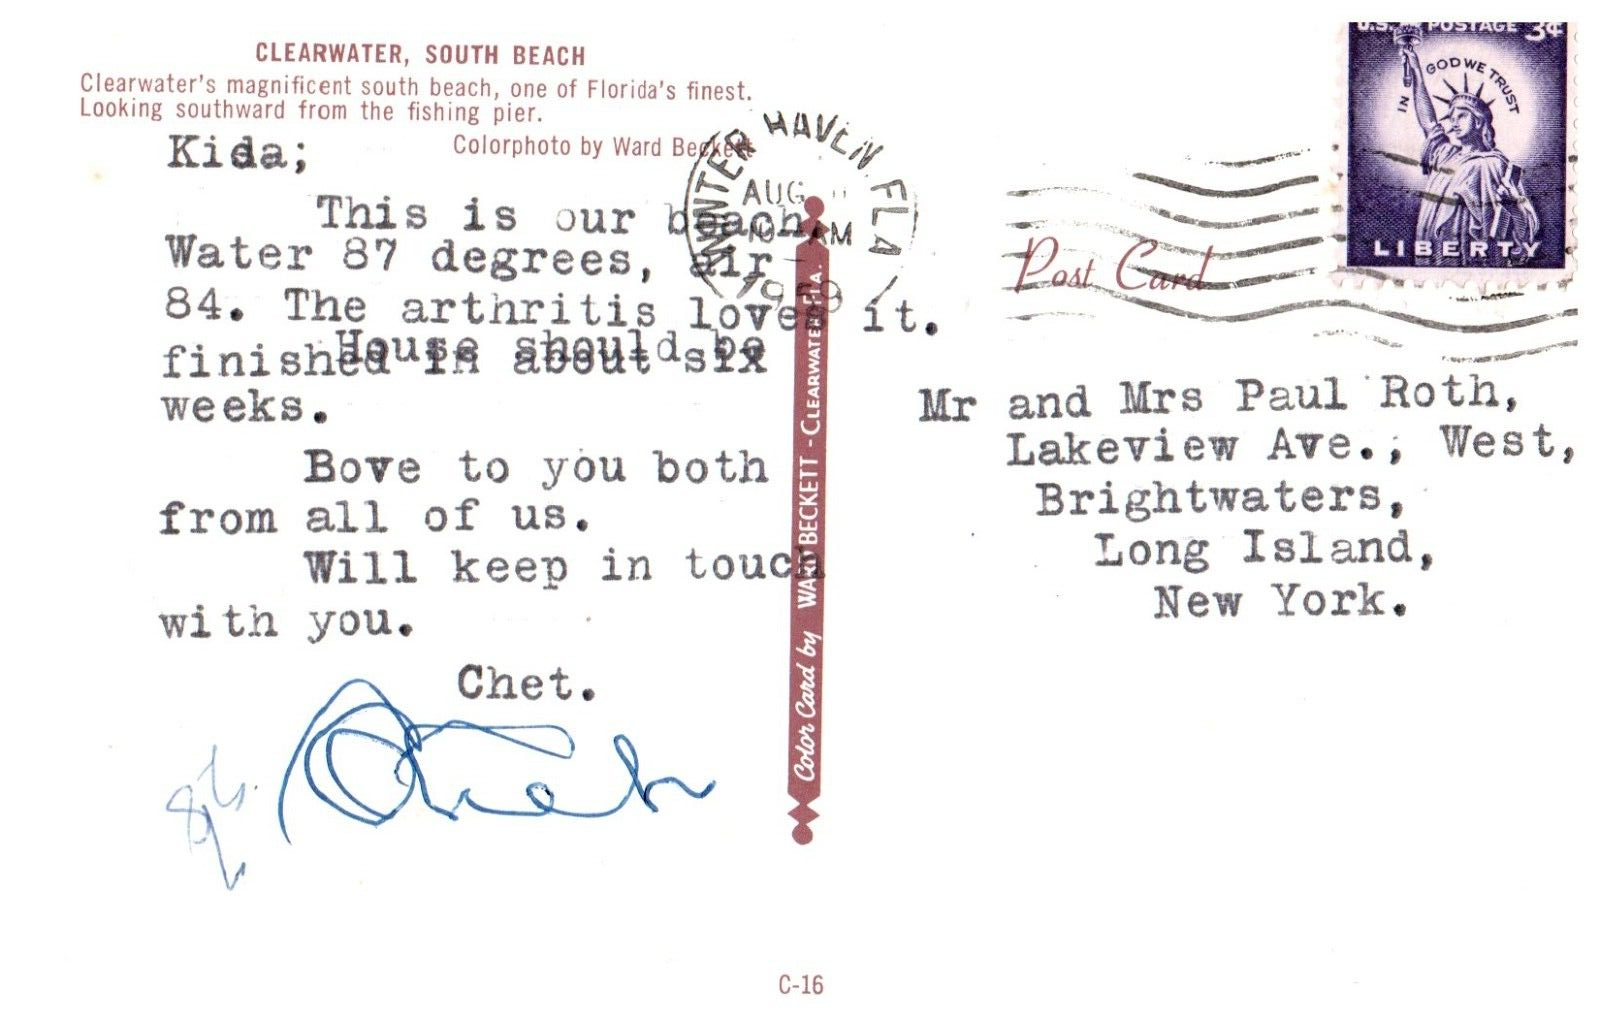 CLEARWATER, SOUTH BEACH
Clearwater's magnificent south beach, one of Florida's finest.
Looking southward from the fishing pier.
Colorphoto by Ward Beckett
Kida;
This is our beach.
Water 87 degrees, air
84. The arthritis loves it.
House should be
finished in about six
weeks.
Bove to you both
from all of us.
Will keep in touch
with you.
Chet.
WINTER HAVEN, FLA
AUG
AM
Color Card by WARD BECKETT - CLEARWATER, FLA.
U.S. POSTAGE 3¢
IN GOD WE TRUST
LIBERTY
Post Card
Mr and Mrs Paul Roth,
Lakeview Ave., West,
Brightwaters,
Long Island,
New York.
C-16